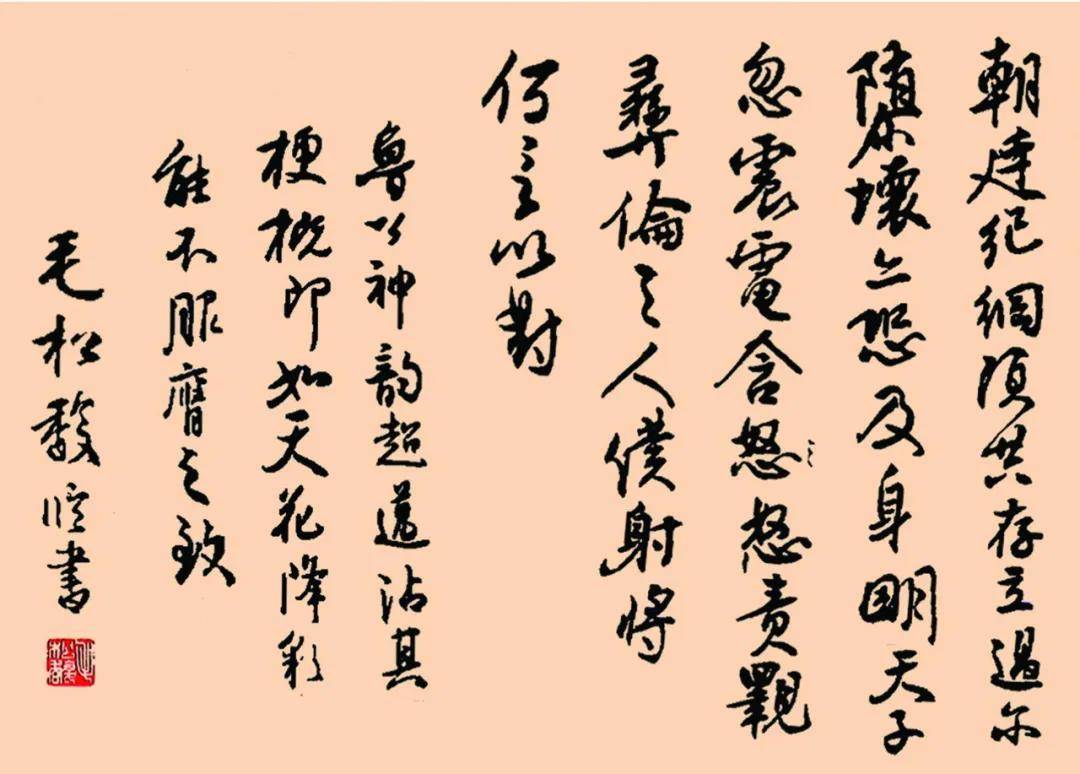 朝廷紀綱須共存立過尔
隳壞亦恐及身明天子
忽震電含怒怒責觀
彝倫之人僕射將
何言以對
魯公神韵超邁沾其
梗概即如天花降彩
能不服膺之致
毛松馥臨書